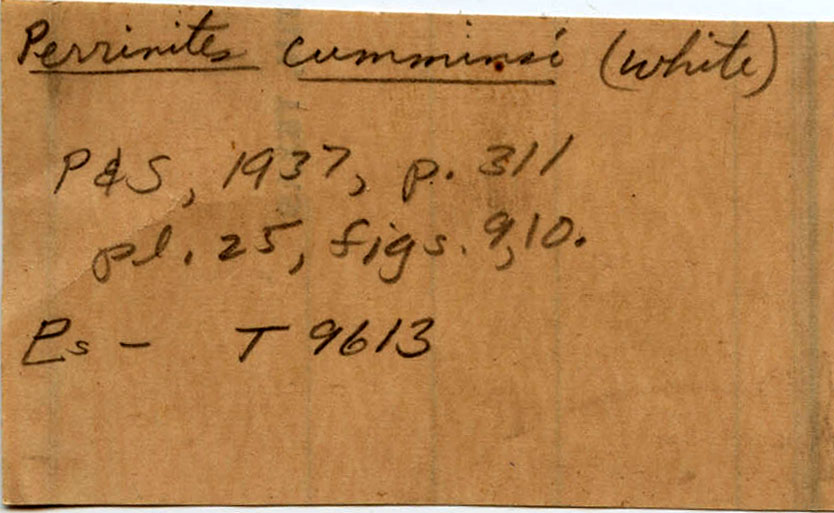 Perrinites cumminsi (White)
P&S, 1937, p. 311
pl. 25, figs. 9,10.
Ps - T 9613